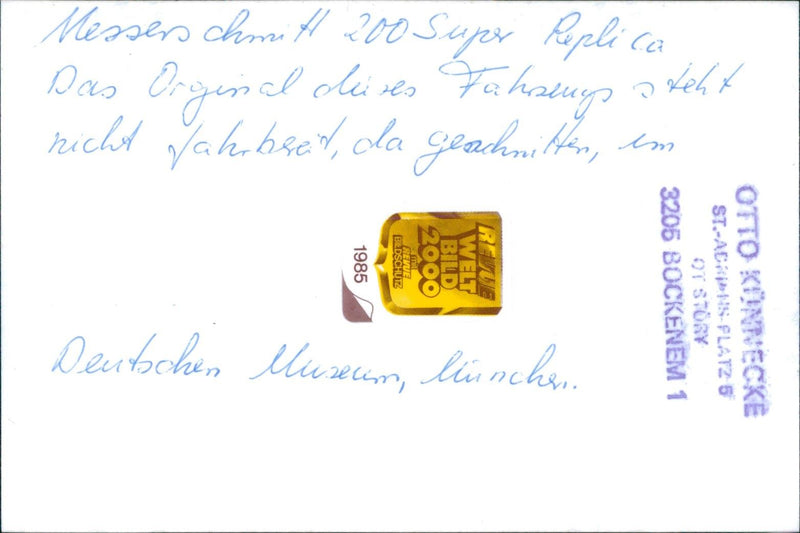 Messerschmitt 200 Super Replica
Das Orginal dieses Fahrzeugs steht
nicht fahrbereit, da geschnitten, im
Deutschen Museum, München.
REVUE
WELT
BILD
2000
REVUE
BILDSCHUTZ
1985
OTTO KÜNNECKE
ST.-ADRIANS-PLATZ 5
OT STÖRY
3205 BOCKENEM 1